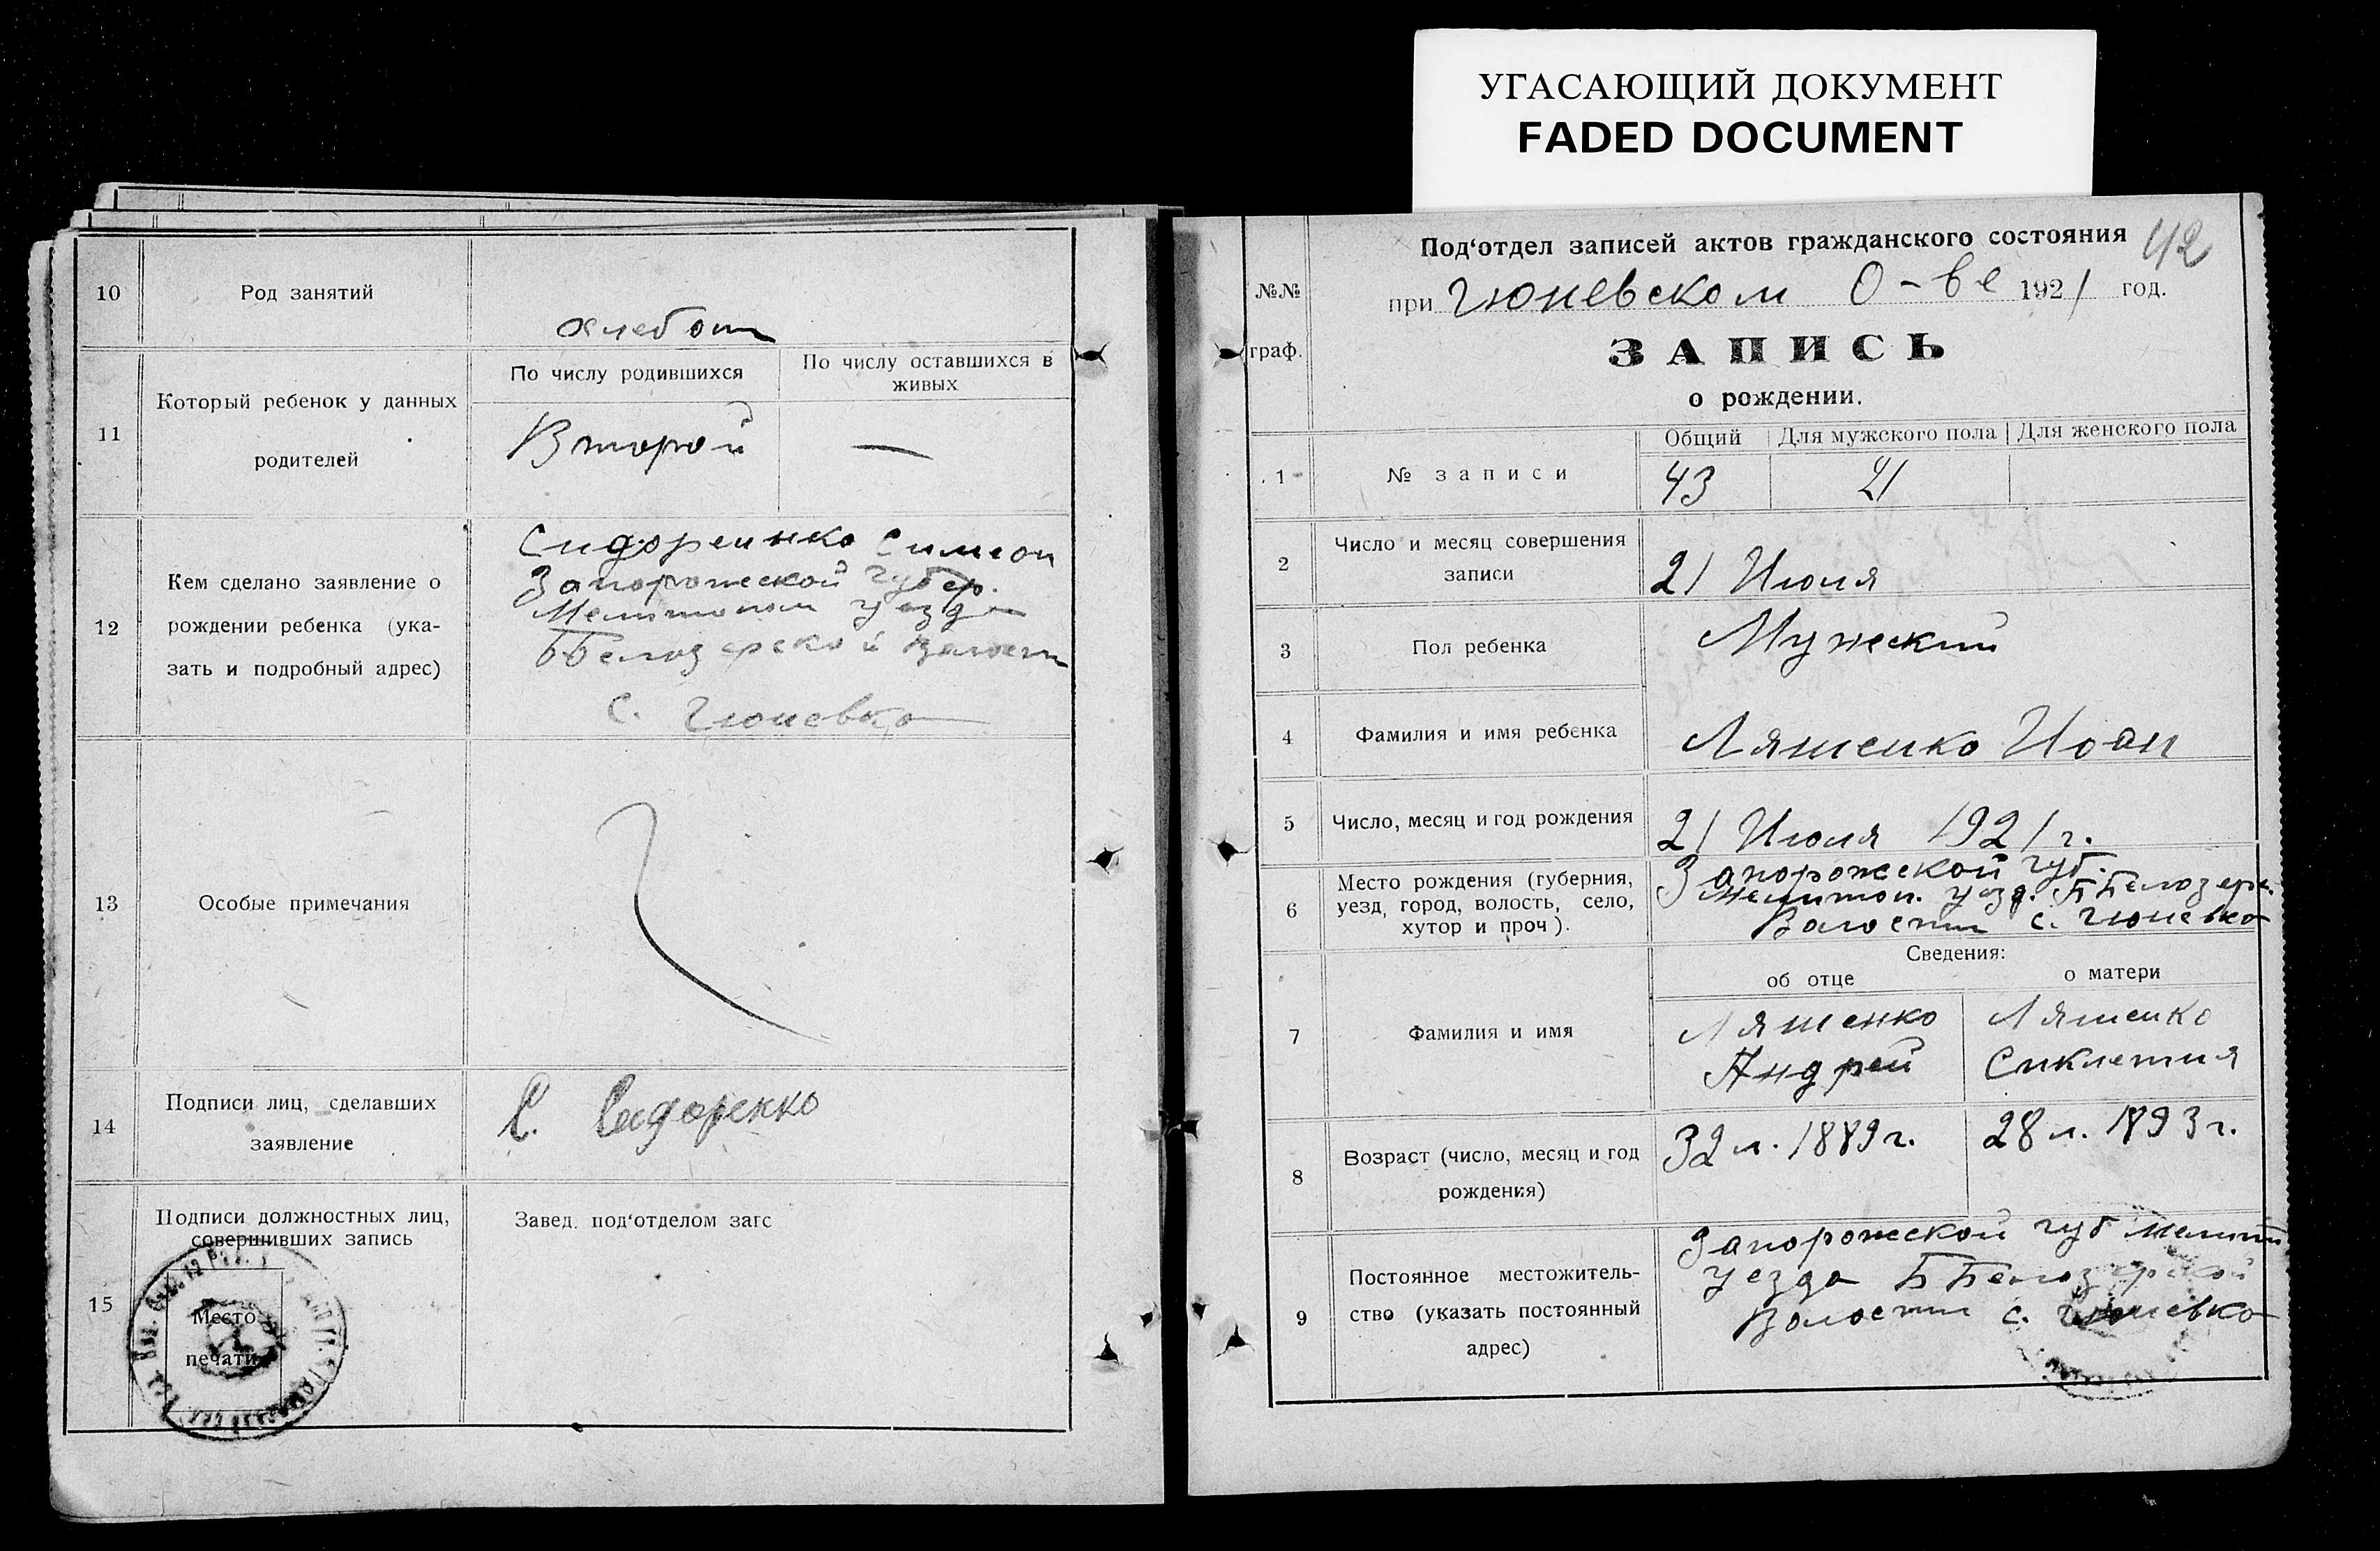 УГАСАЮЩИЙ ДОКУМЕНТ
FADED DOCUMENT
10
Род занятий
хлебоп
11
Который ребенок у данных
родителей
По числу родившихся
По числу оставшихся в
живых
Второй
—
12
Кем сделано заявление о
рождении ребенка (ука-
зать и подробный адрес)
Сидоренко Симеон
Запорожской губер.
Мелитопол уезда
ББелозерской волости
с. Гюневка
13
Особые примечания
14
Подписи лиц, сделавших
заявление
С. Сидоренко
15
Подписи должностных лиц,
совершивших запись
Место
печати
Завед. под‘отделом загс
42
Под‘отдел записей актов гражданского состояния
при Гюневском О-ве 1921 год.
№№
граф.
ЗАПИСЬ
о рождении.
1
№ записи
Общий
Для мужского пола
Для женского пола
43
21
2
Число и месяц совершения
записи
21 Июля
3
Пол ребенка
Мужский
4
Фамилия и имя ребенка
Ляшенко Иоан
5
Число, месяц и год рождения
21 Июля 1921 г.
6
Место рождения (губерния,
уезд, город, волость, село,
хутор и проч).
Запорожской губ.
Мелитоп. уезд. ББелозерс.
Волости с. Гюневка
Сведения:
об отце
о матери
7
Фамилия и имя
Ляшенко
Андрей
Ляшенко
Синклетия
8
Возраст (число, месяц и год
рождения)
32 л. 1889 г.
28 л. 1893 г.
9
Постоянное местожитель-
ство (указать постоянный
адрес)
Запорожской губ Мелит
уезда ББелозерской
Волости с. Гюневка